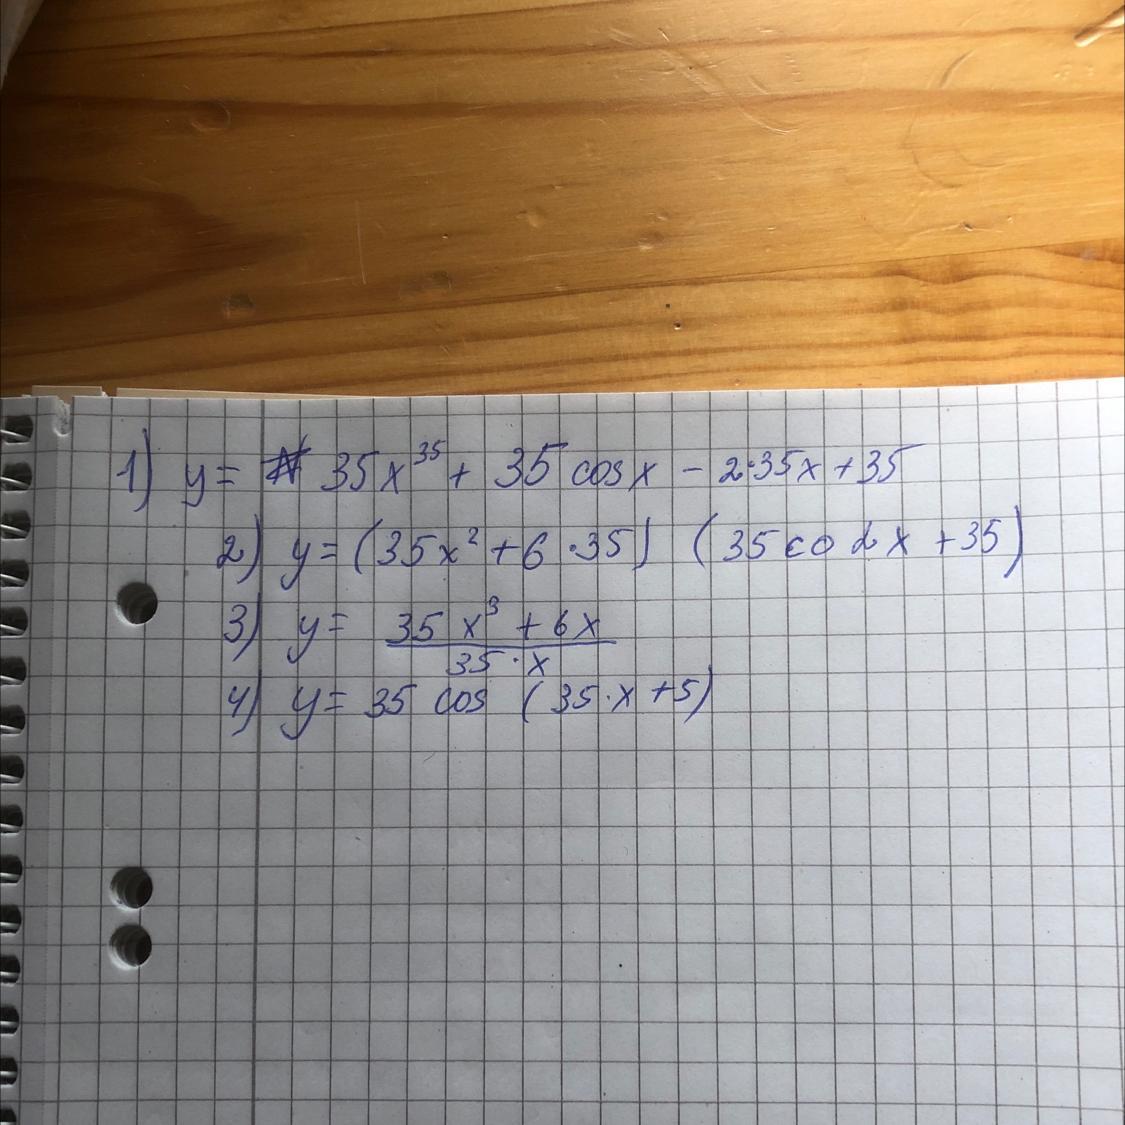 1) y = 35x³⁵ + 35 cos x - 2·35x + 35
2) y = (35x² + 6·35) (35 co 2 x + 35)
3) y = \frac{35 x³ + 6x}{35·x}
4) y = 35 cos (35·x + 5)